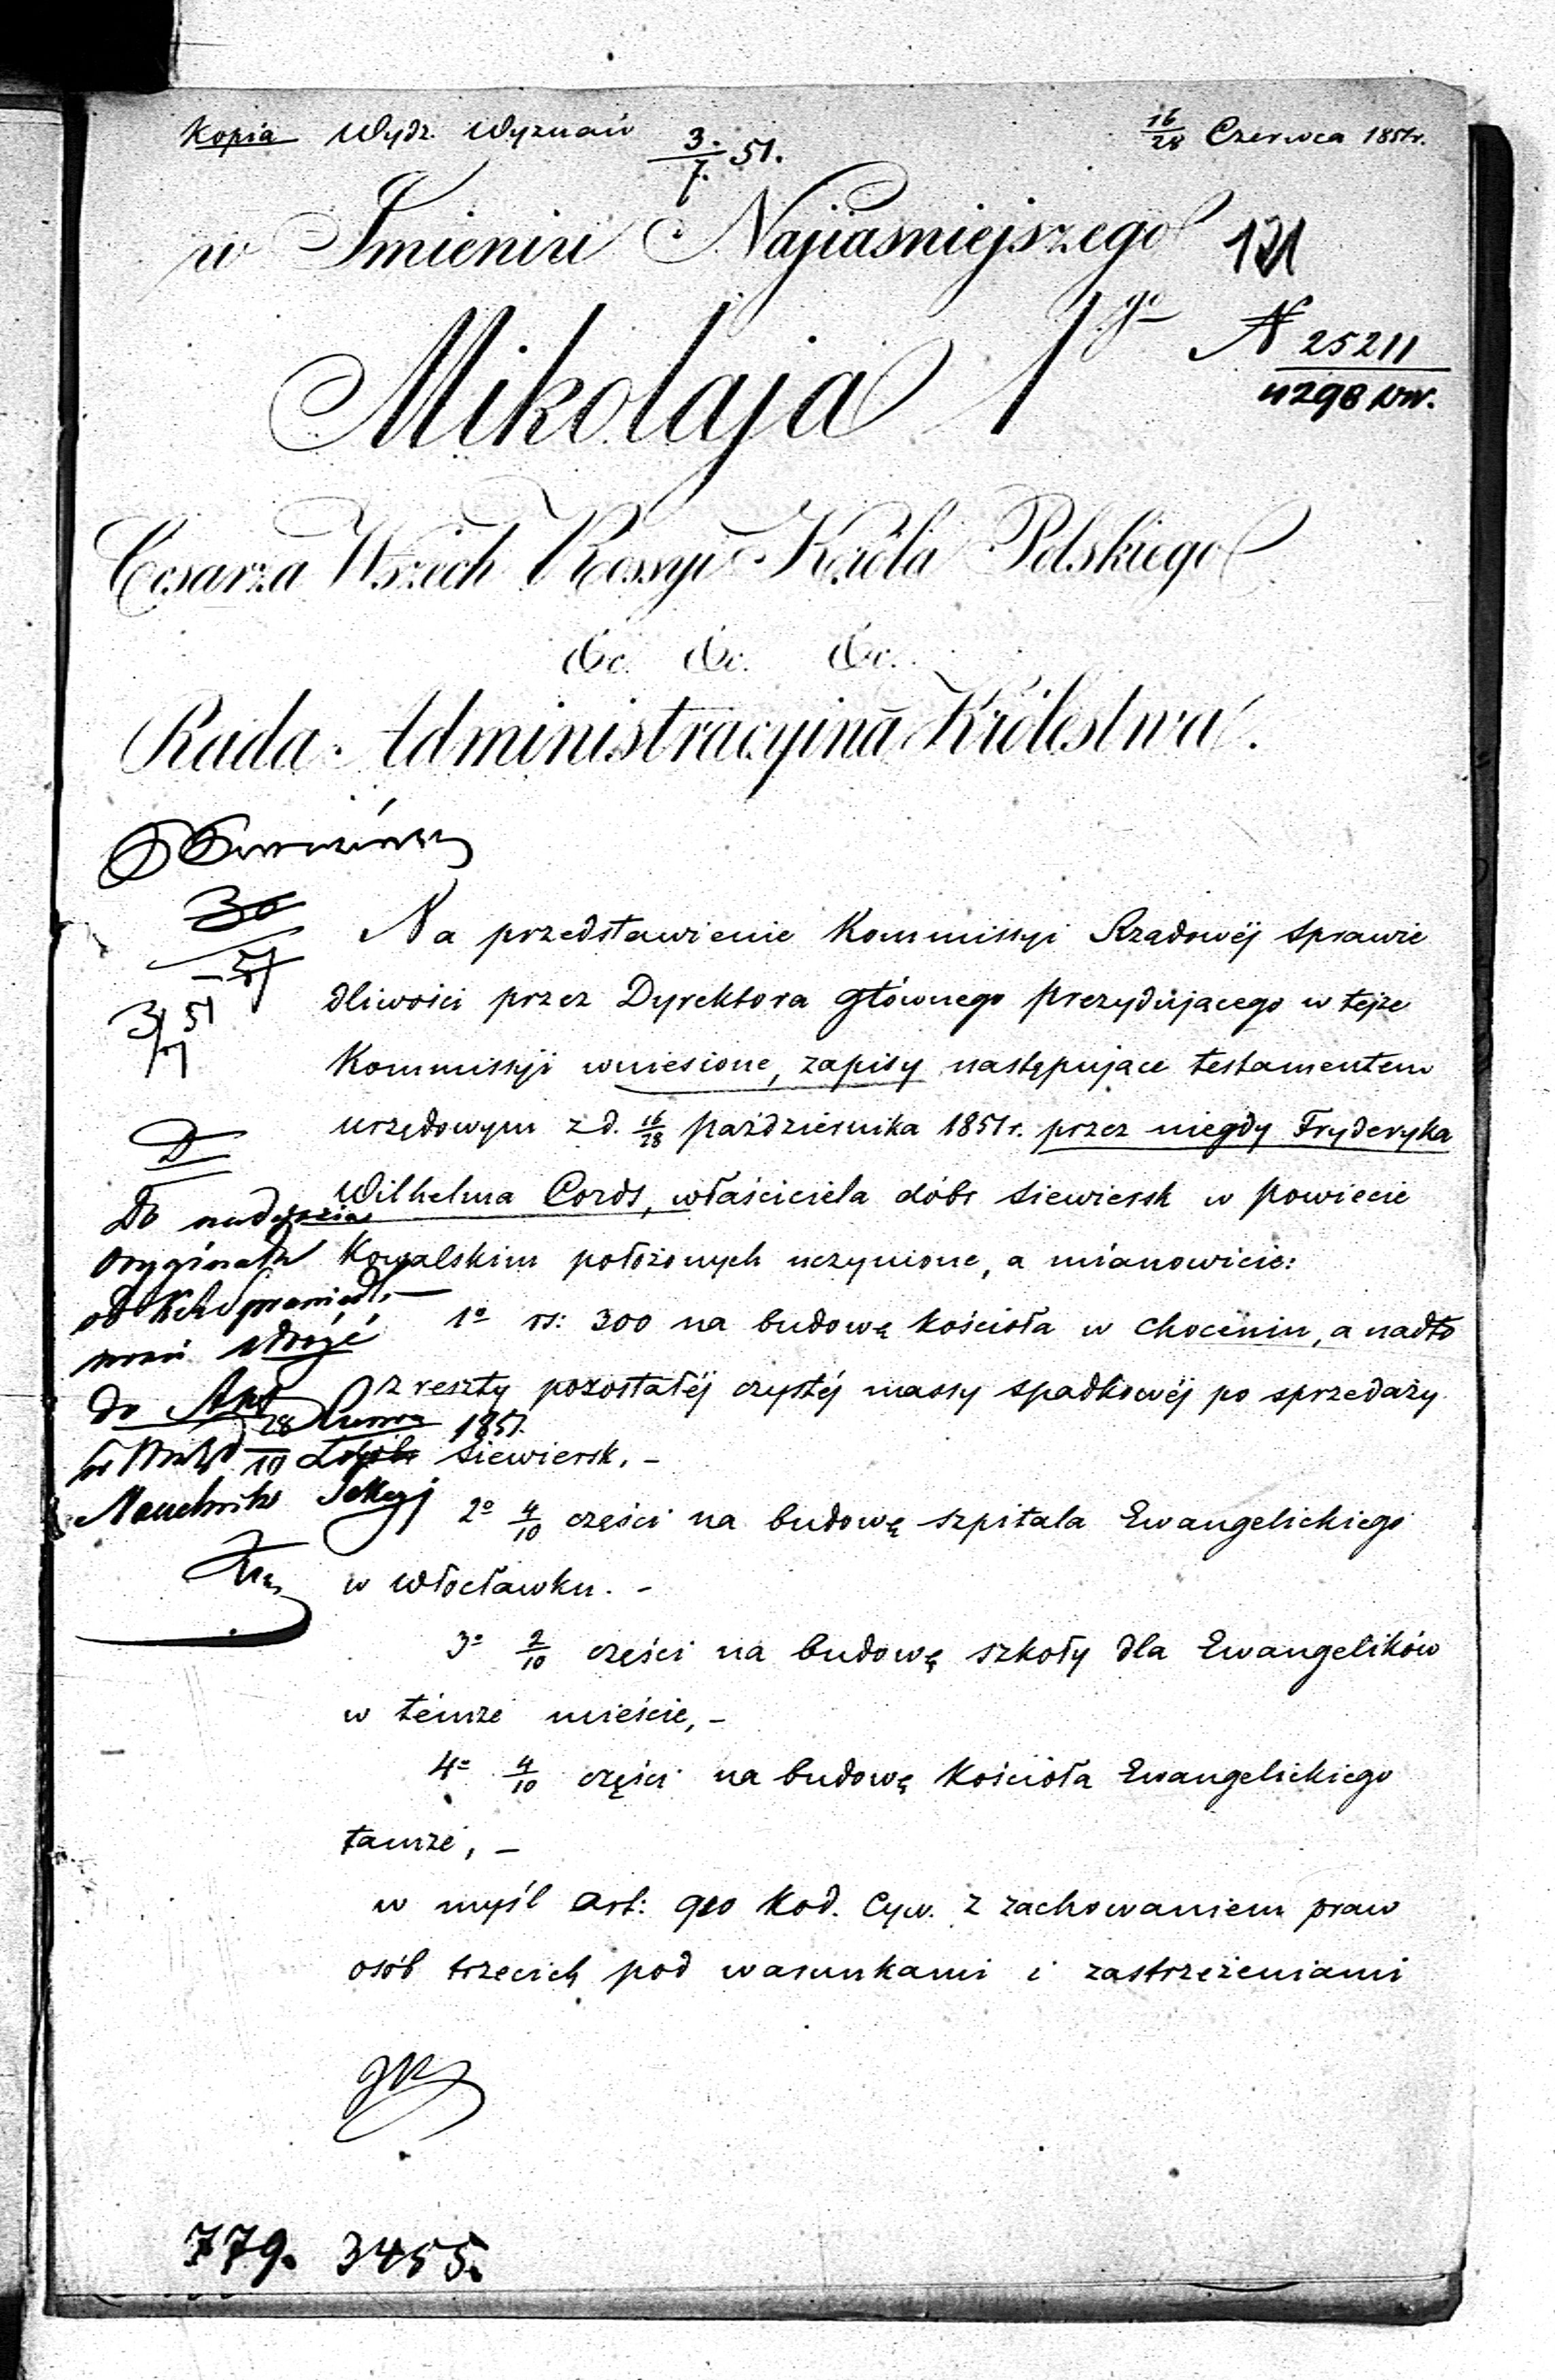 Kopia Wydz. Wyznań 3./7. 51. 16/28 Czerwca 1851r.
w Imieniu Najiasniejszego 121
Mikołaja 1go N 25211
4298 WW.
Cesarza Wszech Rossyi Króla Polskiego
&c. &c. &c.
Rada Administracyina Królestwa.
30
51
3/7 51
Na przedstawienie Kommissyi Rządowéj Sprawie
dliwości przez Dyrektora Głównego Prezydującego w téjże
Kommissyi wniesione, zapisy następujące testamentem
urzędowym z d. 16/28 Października 1851r. przez niegdy Fryderyka
Wilhelma Cords, właściciela dóbr Siewiersk w Powiecie
Kowalskim położonych uczynione, a mianowicie:
1o rs: 300 na budowę kościoła w Choceniu, a nadto
z reszty pozostałéj czystéj massy spadkowéj po sprzedaży
Siewiersk. –
2o 4/10 części na budowę szpitala Ewangelickiego
w Włocławku. –
3o 2/10 części na budowę szkoły dla Ewangelików
w témże mieście, –
4o 4/10 części na budowę Kościoła Ewangelickiego
tamże, –
w myśl Art: 910 Kod. Cyw. z zachowaniem praw
osób trzecich pod warunkami i zastrzeżeniami
D
Do nadejścia
oryginału
do
28 1851.
10
Naczelnik Sekcyj
779. 3455.